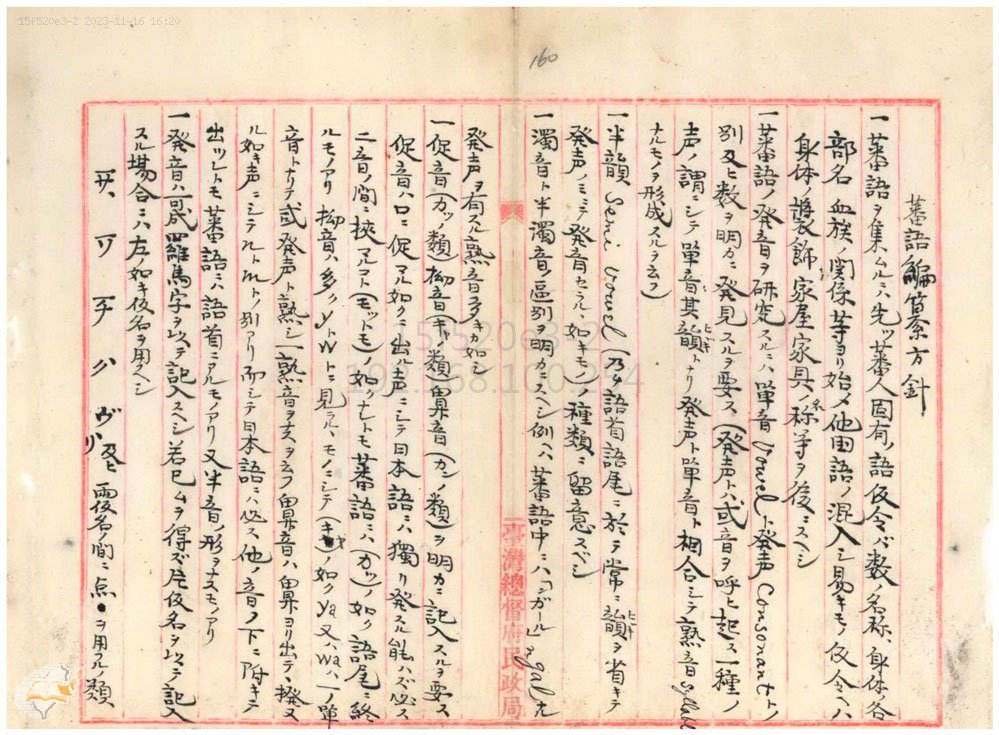 15f520e3-2 2023-11-16 16:20
160
蕃語編纂方針
一蕃語ヲ集ムルニハ先ッ蕃人固有ノ語仮令バ数ノ名称、身体各
部名血族ノ関係等ヨリ始メ他国語ノ混入シ易キモノ仮令ヘハ
身体ノ装飾家屋家具ノ名称等ヲ後ニスヘシ
一蕃語ノ発音ヲ研究スルニハ単音Vowelト発声Consonantトノ
別及ヒ数ヲ明カニ発見スルヲ要ス(発声トハ或音ヲ呼ヒ起ス一種ノ
声ノ謂ニシテ単音其韻ヒヾキトナリ発声ト単音ト相合シテ熟音
ナルモノヲ形成スルヲ云フ)
一半韻 Semi vowel (乃チ語首語尾ニ於テ常ニ韻ヒヾキヲ省キテ
発声ノミニテ発音セラル、如キモノ)ノ種類ニ留意スベシ
一濁音ト半濁音ノ区別ヲ明カニスヘシ例ヘハ蕃語中ニハ「ンガール」ngalナル
発声ヲ有スル熟音多キカ如シ
一促音(カッノ類)拗音(キャノ類)鼻音(カンノ類)ヲ明カニ記入スルヲ要ス
促音ハ口ニ促マル如クニ出ル声ニシテ日本語ニハ独リ発スル能ハズ必ス
二音ノ間ニ挾マルコト(モットモ)ノ如クナレトモ蕃語ニハ(カッ)ノ如ク語尾ニ終
ルモノアリ拗音ハ多クyトwトニ見ラル、モノニシテ(キャ)ノ如クya又ハwaハ一ノ単
音トナリテ或発声ト熟シ一熟音ヲナスヲ云フ鼻音ハ鼻ヨリ出テ、撥ヌ
ル如キ声ニシテnトmトノ別アリ而シテ日本語ニハ必ス他ノ音ノ下ニ附キテ
出ツレトモ蕃語ニハ語首ニアルモノアリ又半音ノ形ヲナスモノアリ
一発音ハ可成羅馬字ヲ以テ記入スヘシ若已ムヲ得ズ片仮名ヲ以テ記入
スル場合ニハ左ノ如キ仮名ヲ用スヘシ
サ ソ チ ハ ヴ 及ヒ仮名ノ間ニ点・ヲ用ルノ類
臺灣總督府民政局
15f520e3-2
192.168.100.244